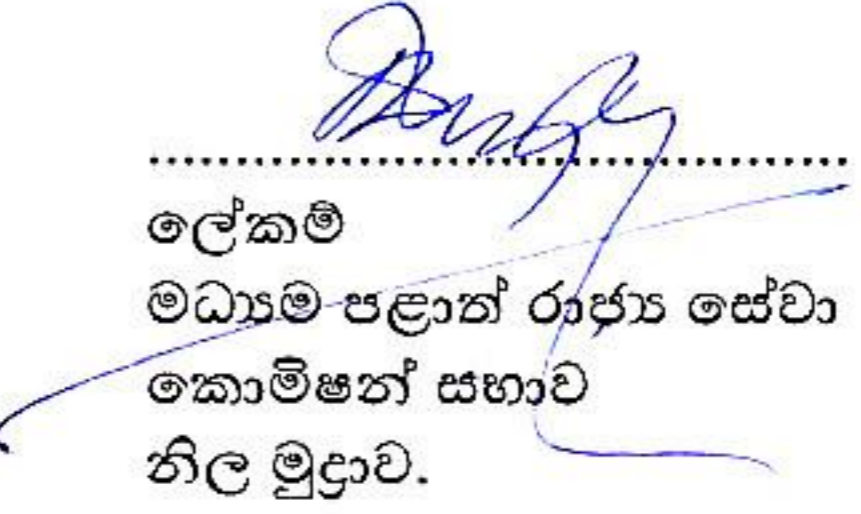 ලේකම්
මධ්‍යම පළාත් රාජ්‍ය සේවා
කොමිෂන් සභාව
නිල මුද්‍රාව.